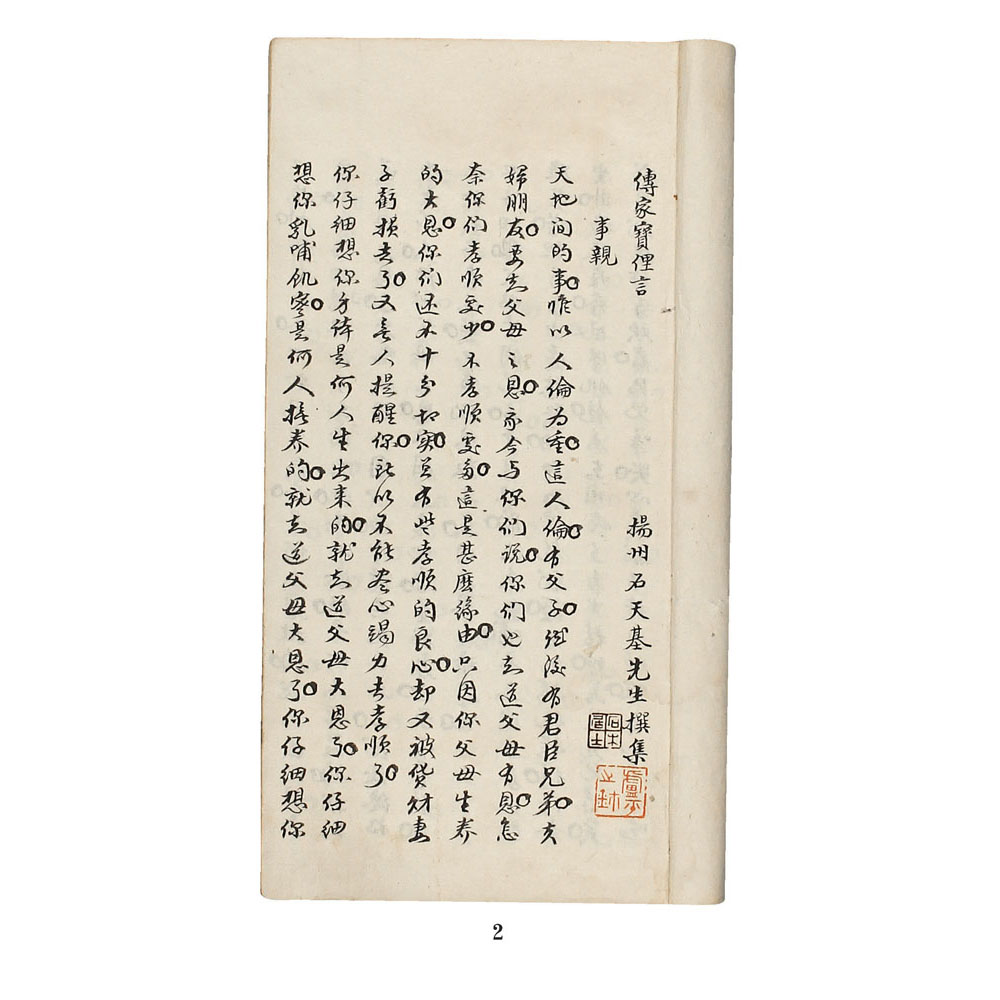 傳家寶俚言
揚州石天基先生撰集
事親
天地间的事惟以人倫为重這人倫有父子然後有君臣兄弟夫
婦朋友要知父母之恩我今与你们说你们也知道父母有恩怎
奈你们孝順處少不孝順處多這是甚麽緣由只因你父母生养
的大恩你们还不十分切实总有些孝順的良心却又被货财妻
子虧损去了又無人提醒你所以不能尽心竭力去孝順了
你仔细想你身体是何人生出来的就知道父母大恩了你仔细
想你乳哺飢寒是何人撫养的就知道父母大恩了你仔细想你
2